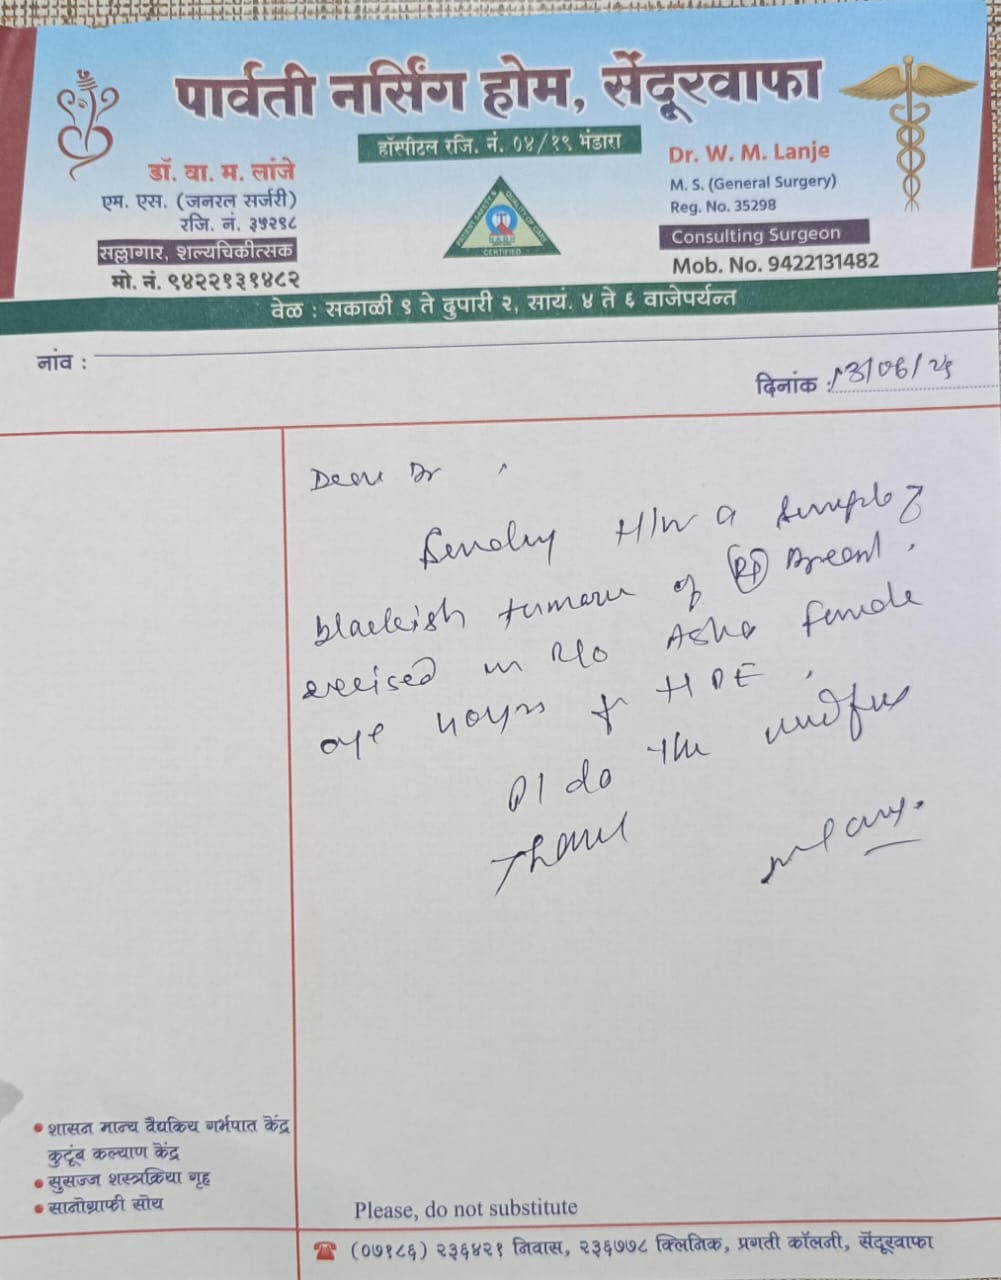 पार्वती नर्सिंग होम, सेंदूरवाफा
हॉस्पीटल रजि. नं. ०४/१९ भंडारा
डॉ. वा. म. लांजे
एम. एस. (जनरल सर्जरी)
रजि. नं. ३५२९८
सल्लागार, शल्यचिकीत्सक
मो. नं. ९४२२१३१४८२
PATIENT SAFETY & QUALITY OF CARE
NABH
CERTIFIED
Dr. W. M. Lanje
M. S. (General Surgery)
Reg. No. 35298
Consulting Surgeon
Mob. No. 9422131482
वेळ : सकाळी ९ ते दुपारी २, सायं. ४ ते ६ वाजेपर्यन्त
नांव :
दिनांक : 13/06/25
Dear Dr
Sending H/w a sample of
blackish tumour of Rt Breast.
excised in Asha female
age 40yrs HPE.
Pl do the
Thank
शासन मान्य वैद्यकिय गर्भपात केंद्र
कुटूंब कल्याण केंद्र
सुसज्ज शस्त्रक्रिया गृह
सानोग्राफी सोय
Please, do not substitute
(०७१८६) २३६४२१ निवास, २३६७७८ क्लिनिक, प्रगती कॉलनी, सेंदूरवाफा